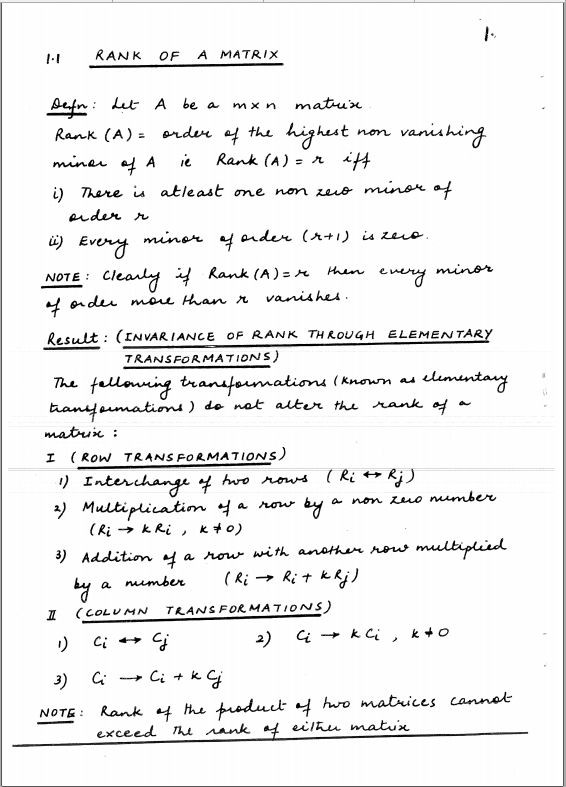 1.
1.1 RANK OF A MATRIX
Defn: Let A be a m×n matrix.
Rank (A) = order of the highest non vanishing
minor of A ie Rank (A) = r iff
i) There is atleast one non zero minor of
order r
ii) Every minor of order (r+1) is zero.
NOTE: Clearly if Rank (A) = r then every minor
of order more than r vanishes.
Result: (INVARIANCE OF RANK THROUGH ELEMENTARY
TRANSFORMATIONS)
The following transformations (known as elementary
transformations) do not alter the rank of a
matrix:
I (ROW TRANSFORMATIONS)
1) Interchange of two rows (Ri ↔ Rj)
2) Multiplication of a row by a non zero number
(Ri → k Ri, k ≠ 0)
3) Addition of a row with another row multiplied
by a number (Ri → Ri + k Rj)
II (COLUMN TRANSFORMATIONS)
1) Ci ↔ Cj 2) Ci → k Ci, k ≠ 0
3) Ci → Ci + k Cj
NOTE: Rank of the product of two matrices cannot
exceed the rank of either matrix